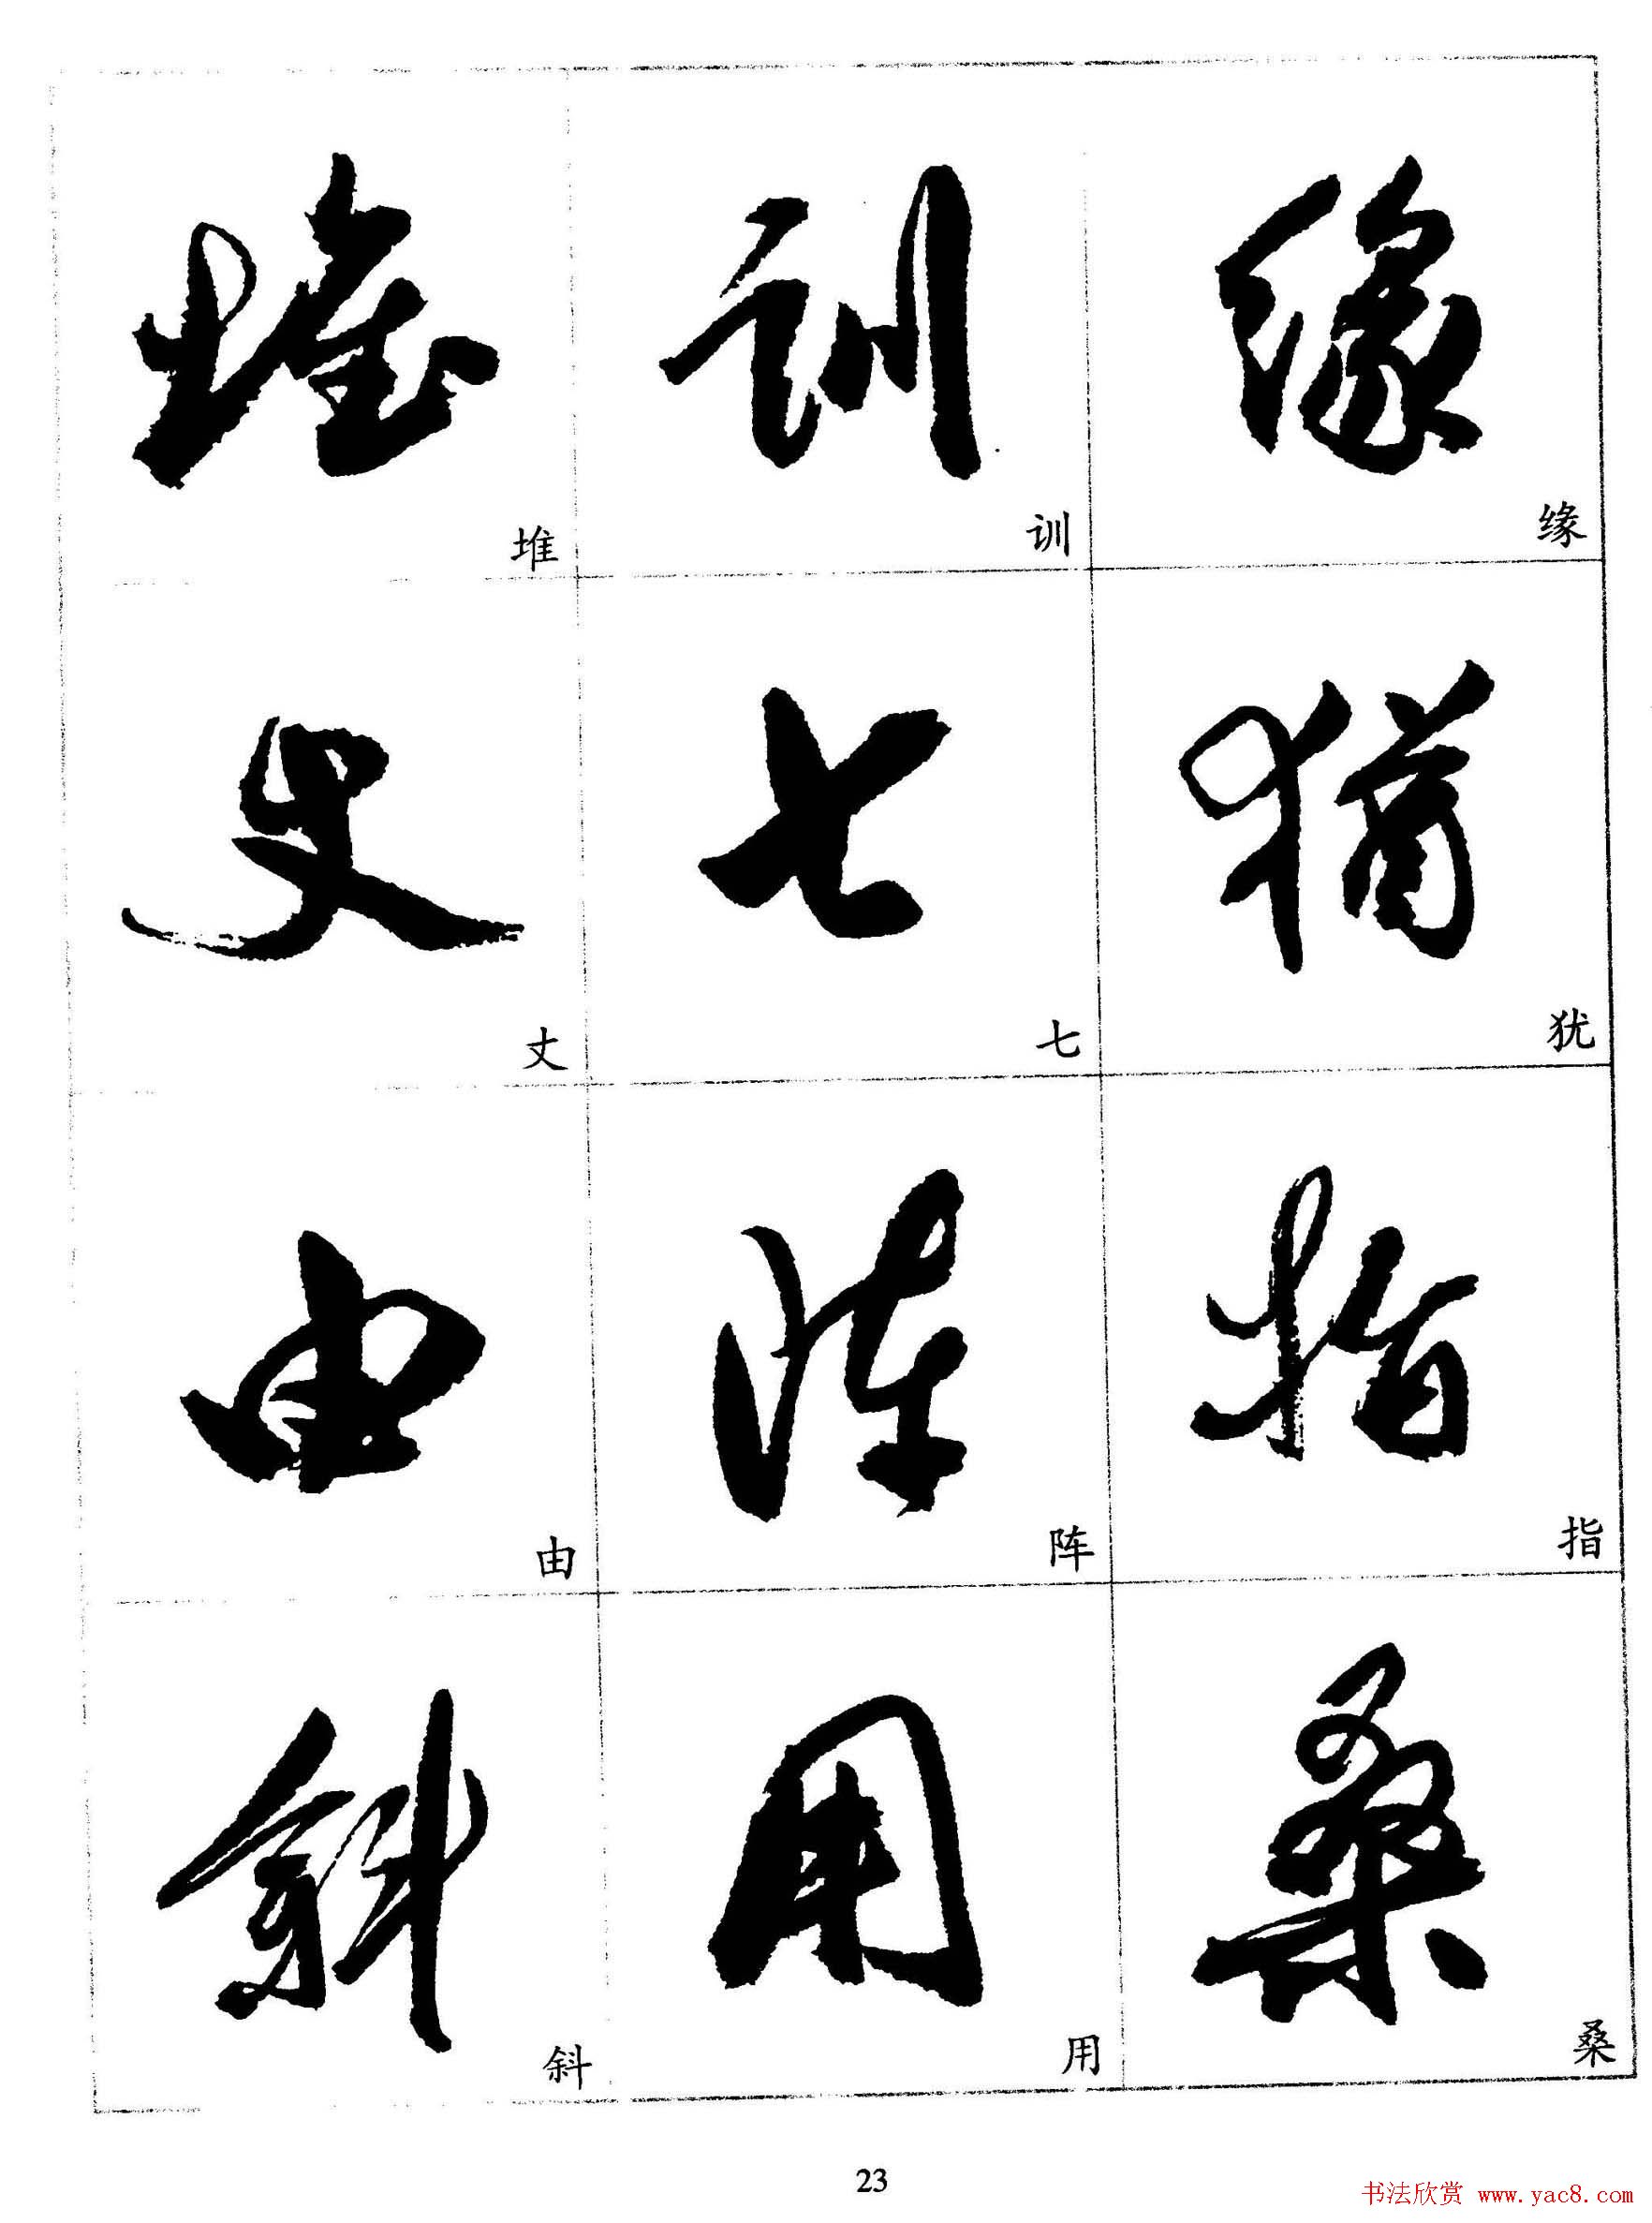 堆 训 缘
丈 七 犹
由 阵 指
斜 用 桑
23
书法欣赏 www.yac8.com